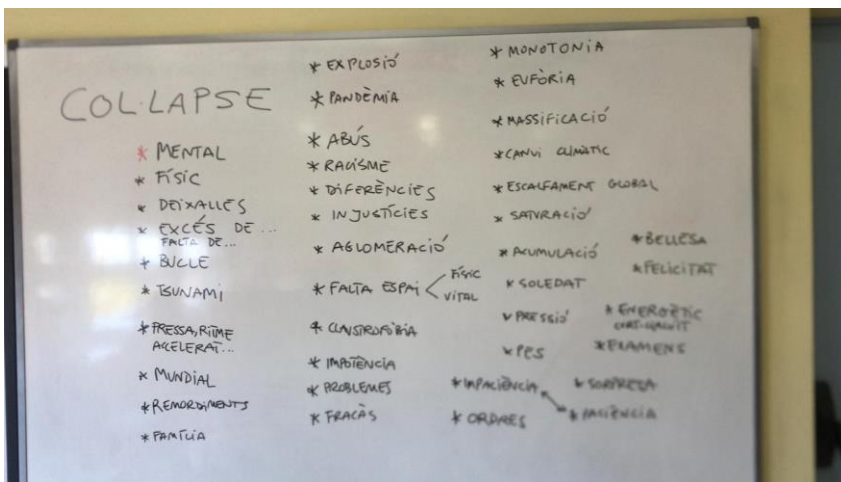 COL·LAPSE
* MENTAL
* FÍSIC
* DEIXALLES
* EXCÉS DE ...
FALTA DE ...
* BUCLE
* TSUNAMI
* PRESSA, RITME
ACCELERAT...
* MUNDIAL
* REMORDIMENTS
* FAMÍLIA
* EXPLOSIÓ
* PANDÈMIA
* ABÚS
* RACISME
* DIFERÈNCIES
* INJUSTÍCIES
* AGLOMERACIÓ
* FALTA ESPAI < FÍSIC
VITAL
* CLAUSTROFÒBIA
* IMPOTÈNCIA
* PROBLEMES
* FRACÀS
* MONOTONIA
* EUFÒRIA
* MASSIFICACIÓ
* CANVI CLIMÀTIC
* ESCALFAMENT GLOBAL
* SATURACIÓ
* ACUMULACIÓ
* SOLEDAT
* PRESSIÓ
* PES
* IMPACIÈNCIA
* ORDRES
* BELLESA
* FELICITAT
* ENERGÈTIC
CURT-CIRCUIT
* EXAMENS
* SORPRESA
* PACIÈNCIA